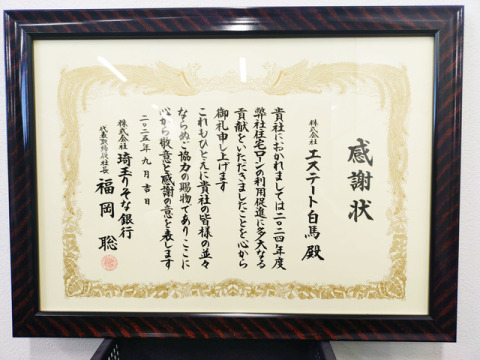 感謝状
株式会社 エステート白馬 殿
貴社におかれましては二〇二四年度
弊社住宅ローンの利用促進に多大なる
貢献をいただきましたことを心から
御礼申し上げます
これもひとえに貴社の皆様の並々
ならぬご協力の賜物でありここに
心から敬意と感謝の意を表します
二〇二五年九月吉日
株式会社 埼玉りそな銀行
代表取締役社長 福岡 聡